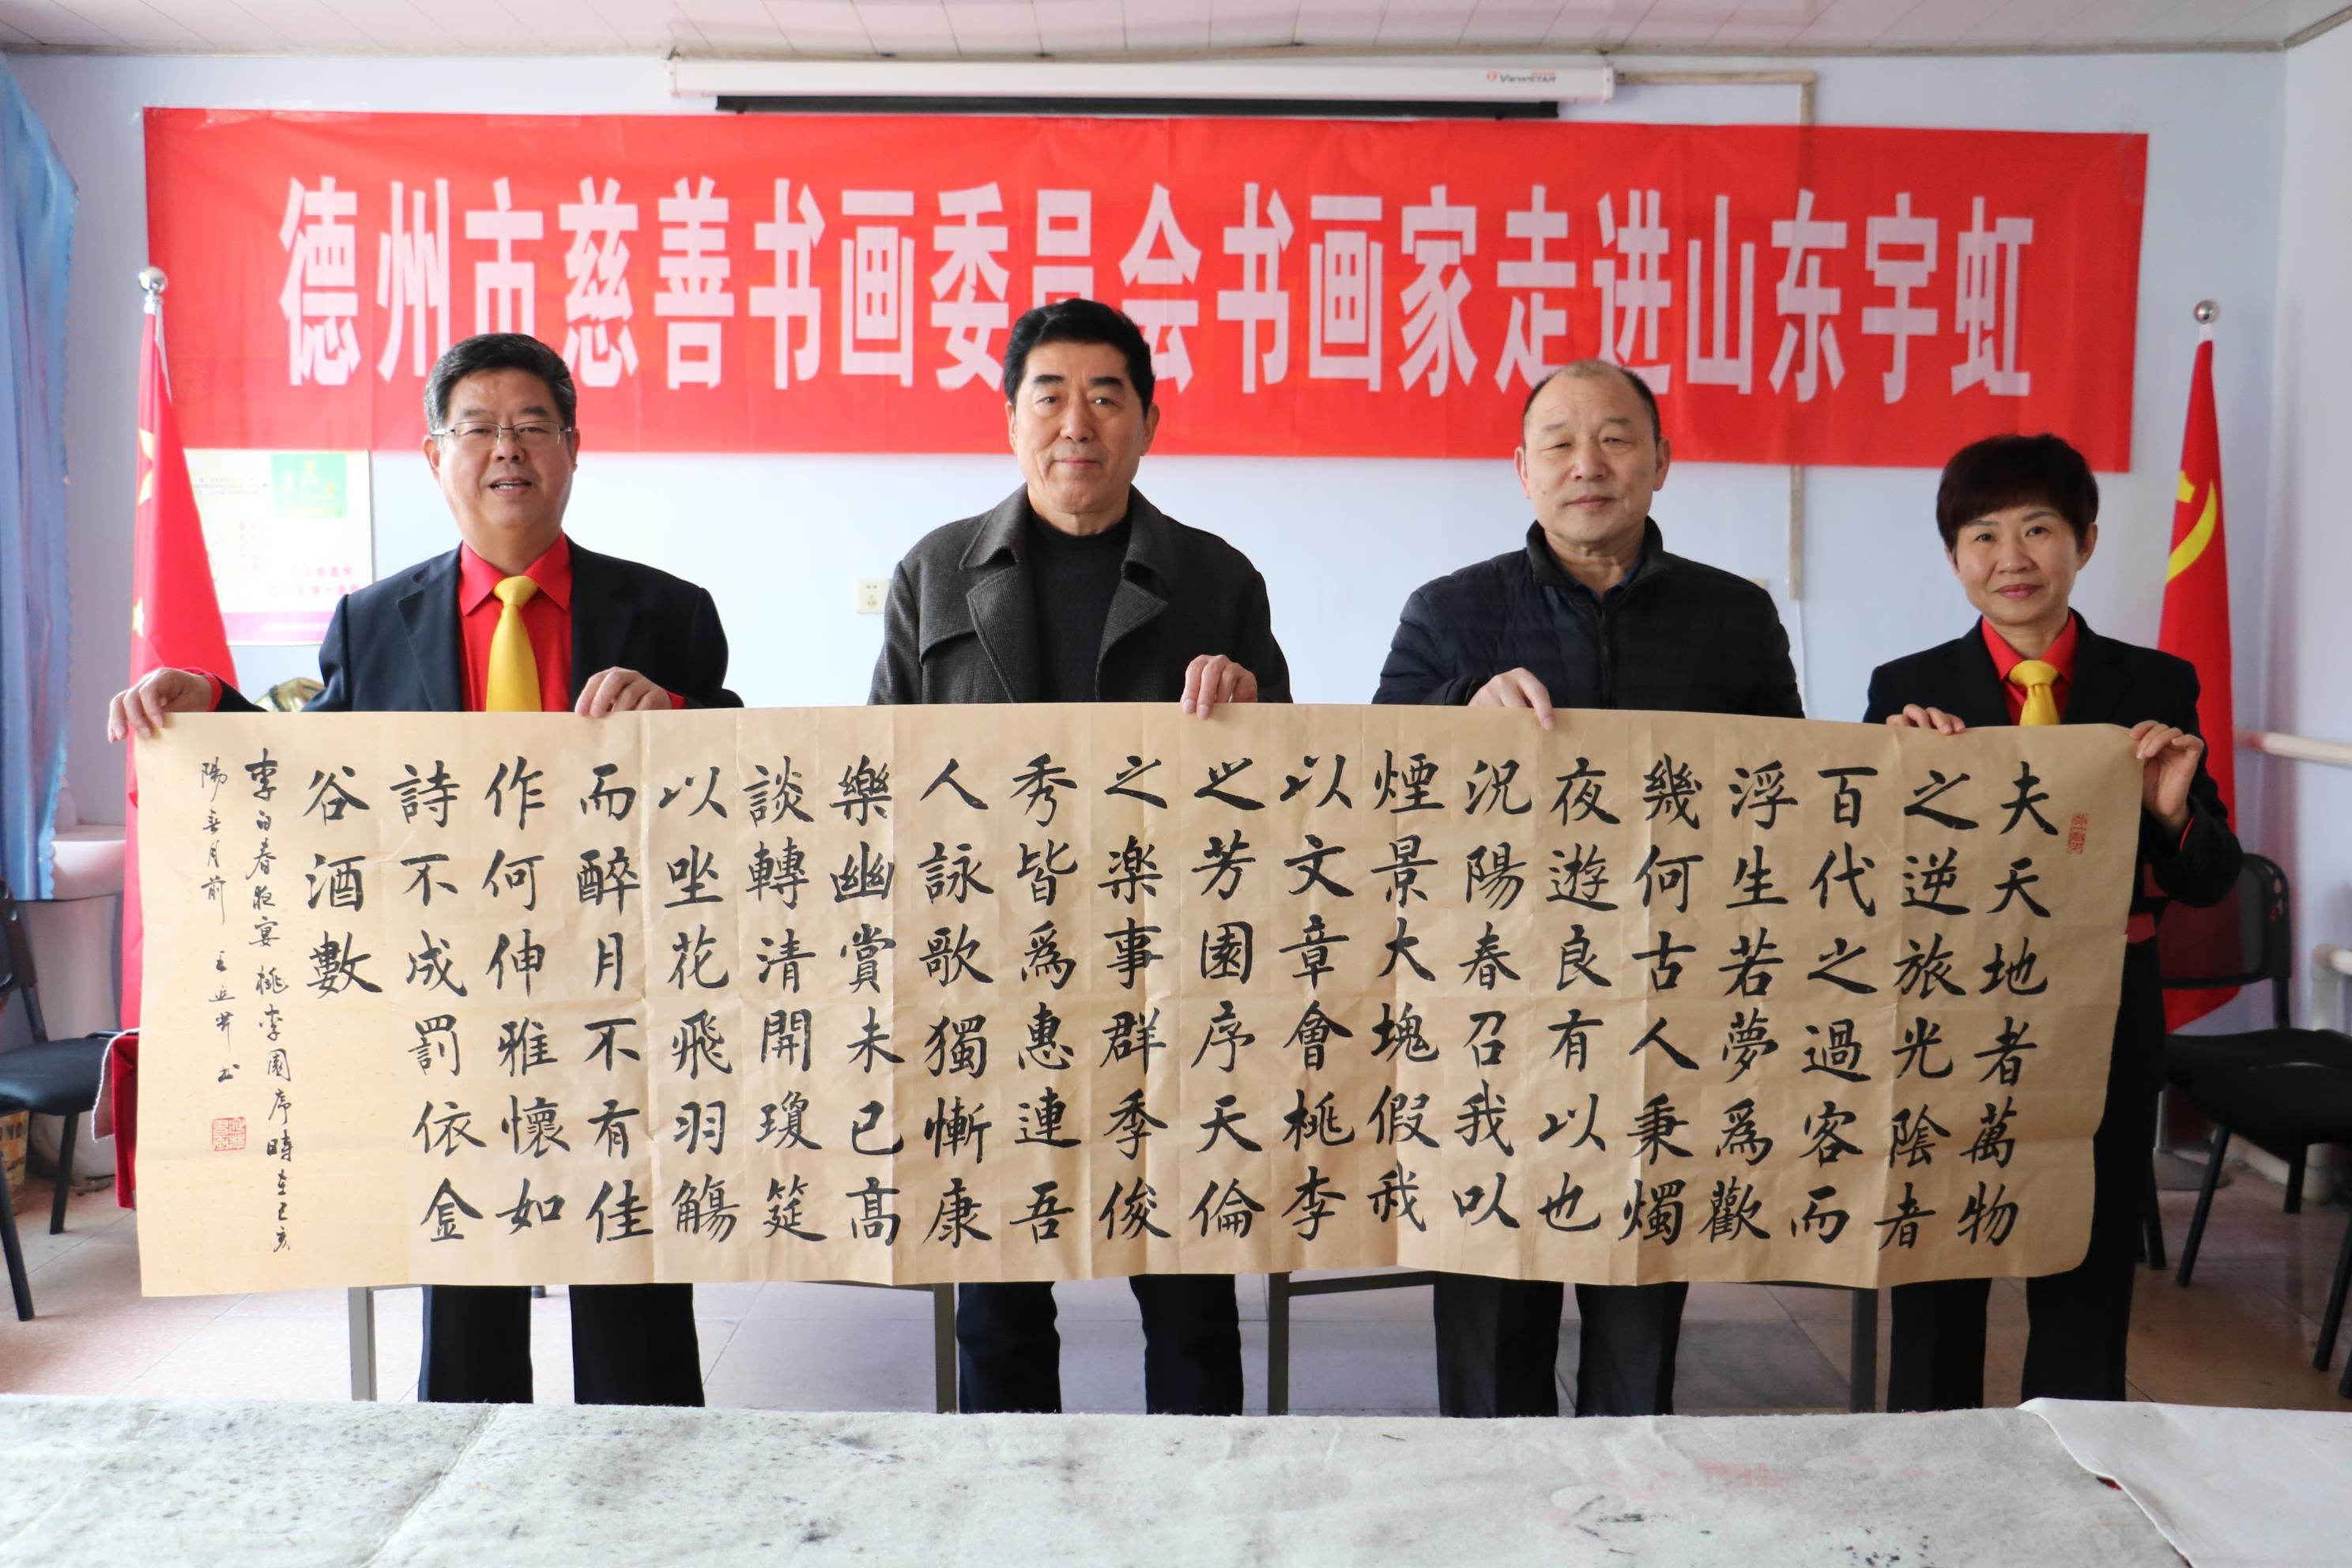 VIEWSTAR
德州市慈善书画委员会书画家走进山东宇虹
夫天地者萬物
之逆旅光陰者
百代之過客而
浮生若夢為歡
幾何古人秉燭
夜遊良有以也
況陽春召我以
煙景大塊假我
以文章會桃李
之芳園序天倫
之楽事群季俊
秀皆為惠連吾
人詠歌獨慚康
樂幽賞未已高
談轉清開瓊筵
以坐花飛羽觴
而醉月不有佳
作何伸雅懷如
詩不成罰依金
谷酒數
李白春夜宴桃李園序時在己亥
陽春月前
书